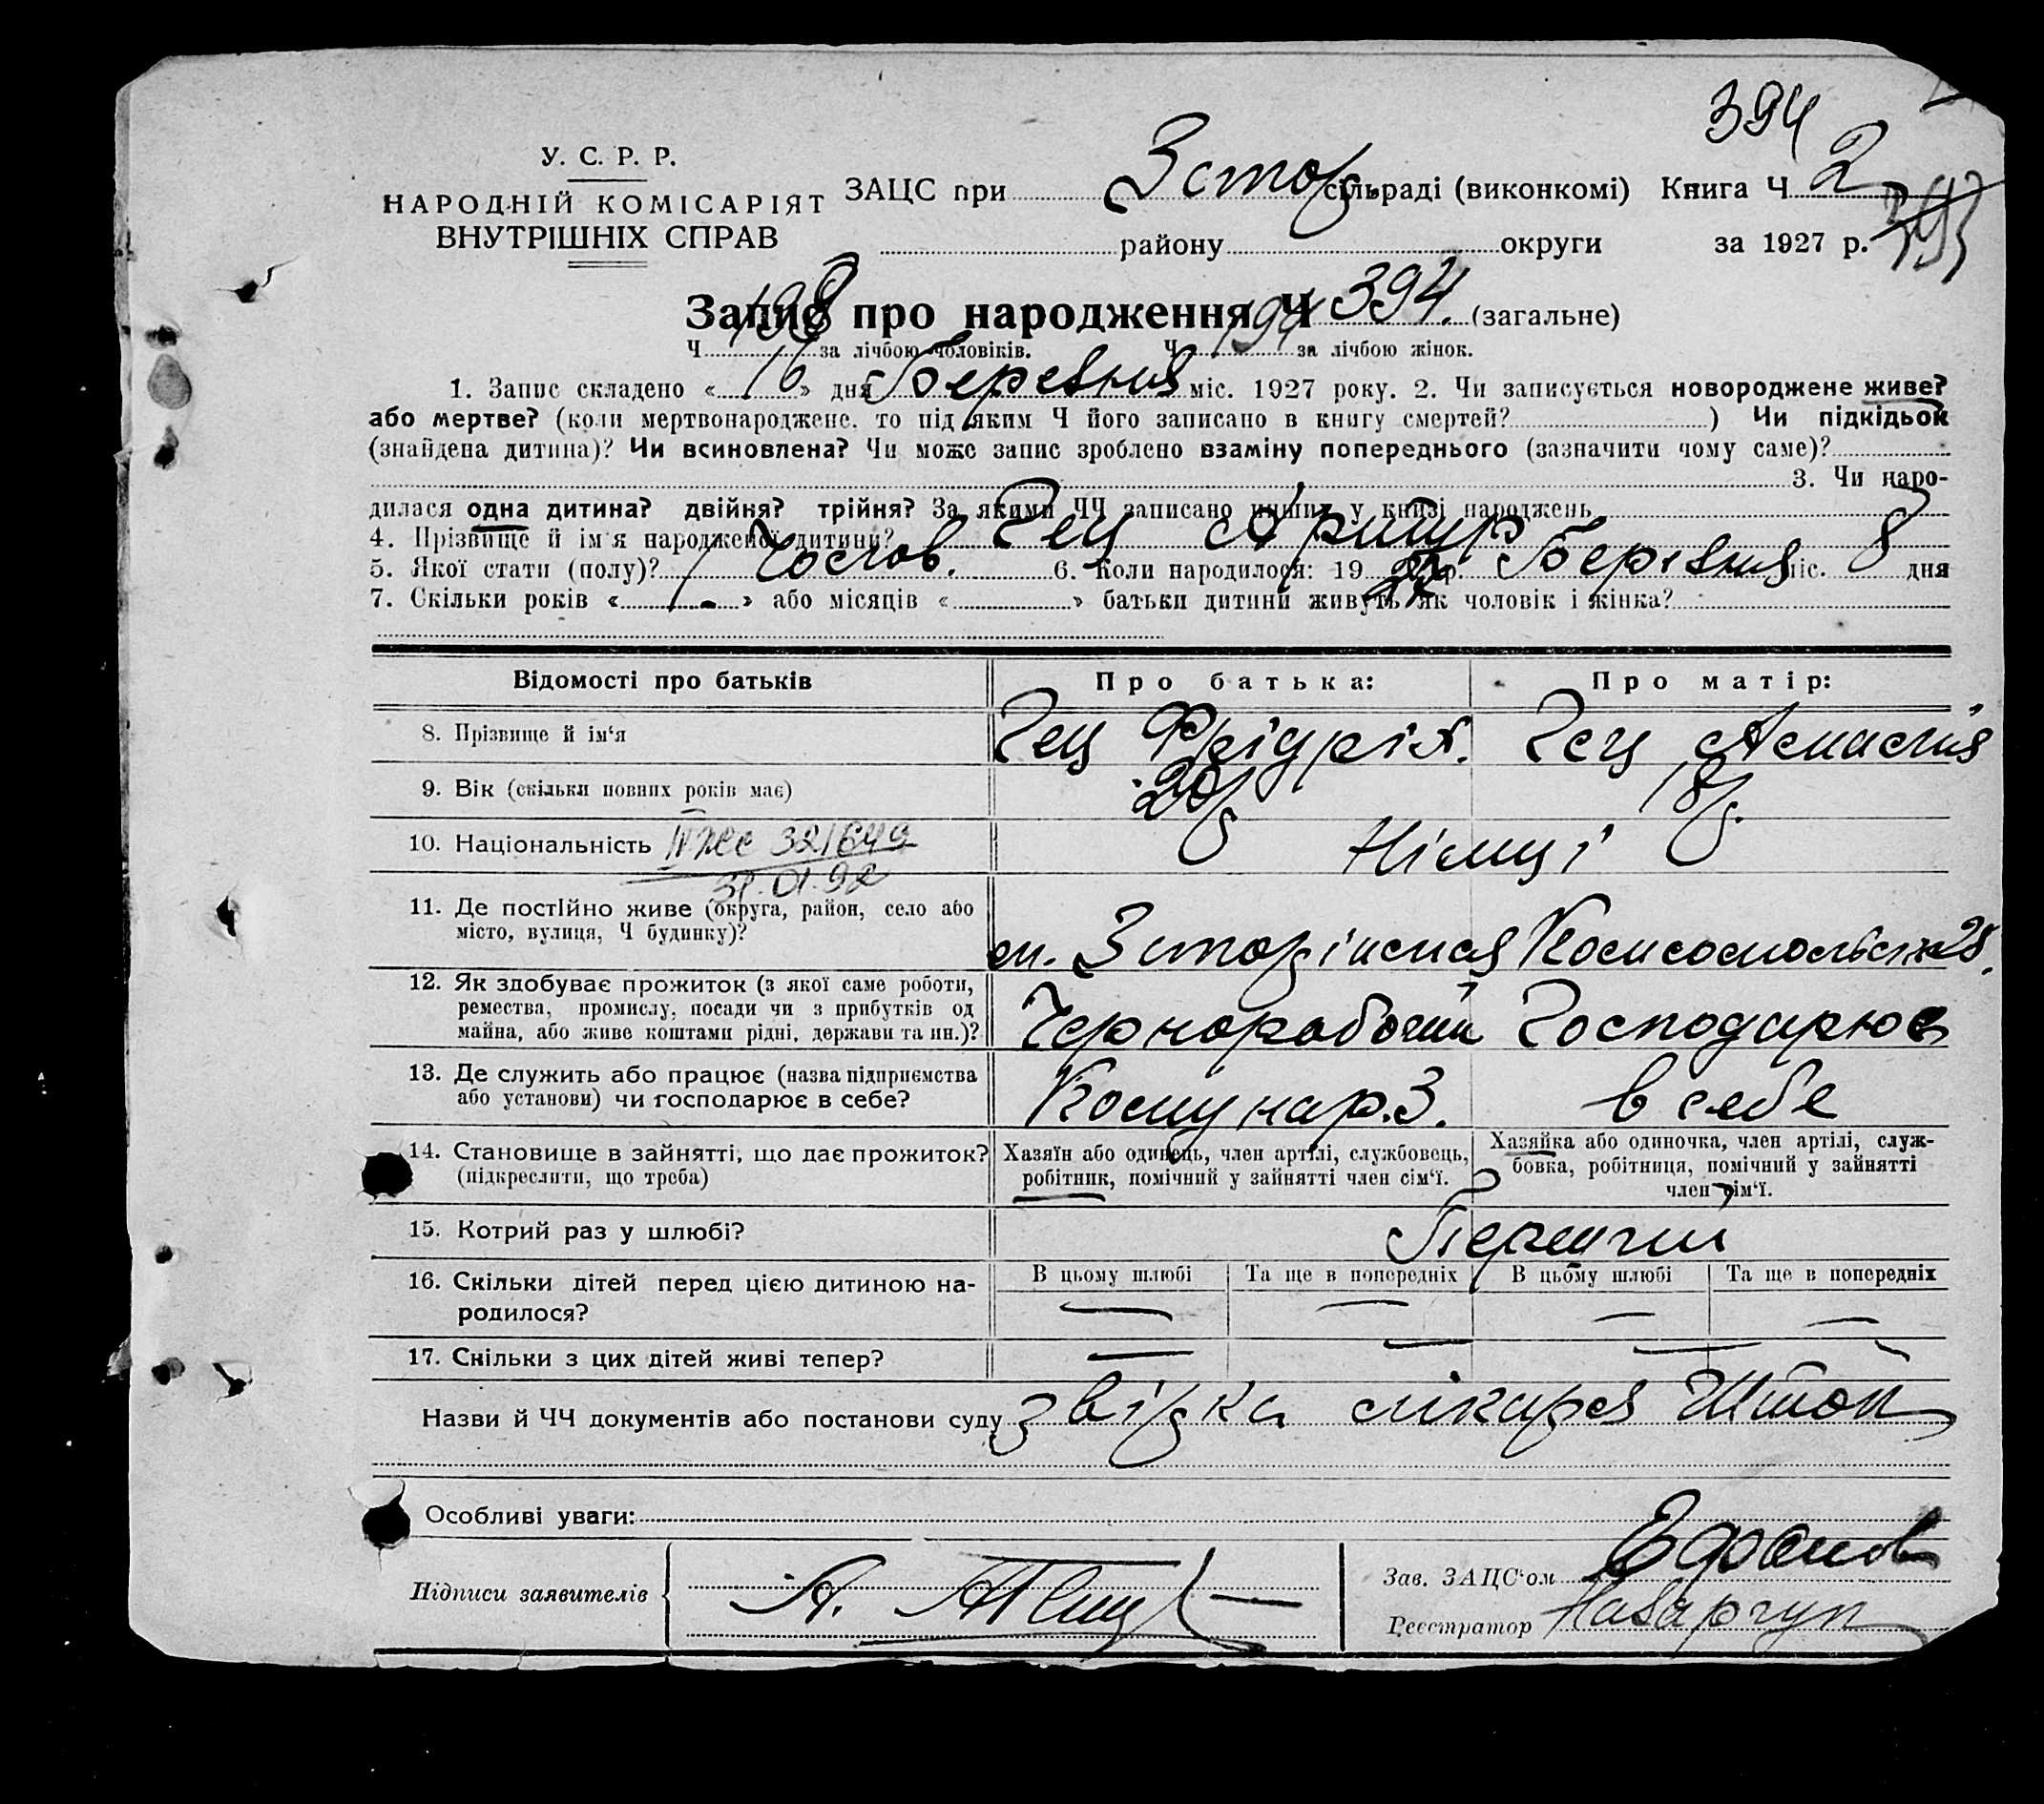 394
У. С. Р. Р.
НАРОДНІЙ КОМІСАРІЯТ
ВНУТРІШНІХ СПРАВ
ЗАЦС при Зстор сільраді (виконкомі) Книга Ч 2
району округи за 1927 р.
Запис про народження Ч 394. (загальне)
Ч 198 за лічбою чоловіків. Ч за лічбою жінок.
1. Запис складено « 16 » дня Березня міс. 1927 року. 2. Чи записується новороджене живе?
або мертве? (коли мертвонароджене, то під яким Ч його записано в книгу смертей? ) Чи підкідьок
(знайдена дитина)? Чи всиновлена? Чи може запис зроблено взаміну попереднього (зазначити чому саме)?
3. Чи наро-
дилася одна дитина? двійня? трійня? За якими ЧЧ записано инших у книзі народжень
4. Прізвище й ім'я народженої дитини? Гец Артур
5. Якої стати (полу)? Чолов. 6. Коли народилося: 19 27 р. Березня міс. 8 дня
7. Скільки років « 1 » або місяців « » батьки дитини живуть як чоловік і жінка?
Відомості про батьків Про батька: Про матір:
8. Прізвище й ім'я Гец Фрідріх. Гец
9. Вік (скільки повних років має) 20 18
10. Національність 321649 Німці
31.01.92
11. Де постійно живе (округа, район, село або
місто, вулиця, Ч будинку)? Комсомольська 28.
12. Як здобуває прожиток (з якої саме роботи,
ремества, промислу, посади чи з прибутків од
майна, або живе коштами рідні, держави та ин.)? Чорноробочий Господарює
13. Де служить або працює (назва підприємства
або установи) чи господарює в себе? Комунар. З. в себе
14. Становище в зайнятті, що дає прожиток?
(підкреслити, що треба)
Хазяїн або одинець, член артілі, службовець,
робітник, помічний у зайнятті член сім'ї.
Хазяйка або одиночка, член артілі, служ-
бовка, робітниця, помічний у зайнятті
член сім'ї.
15. Котрий раз у шлюбі? Перший
16. Скільки дітей перед цією дитиною на-
родилося?
В цьому шлюбі Та ще в попередніх В цьому шлюбі Та ще в попередніх
— — — —
17. Скільки з цих дітей живі тепер? — — — —
Назви й ЧЧ документів або постанови суду звідка лікаря
Особливі уваги:
Підписи заявителів А.
Зав. ЗАЦС'ом
Реєстратор